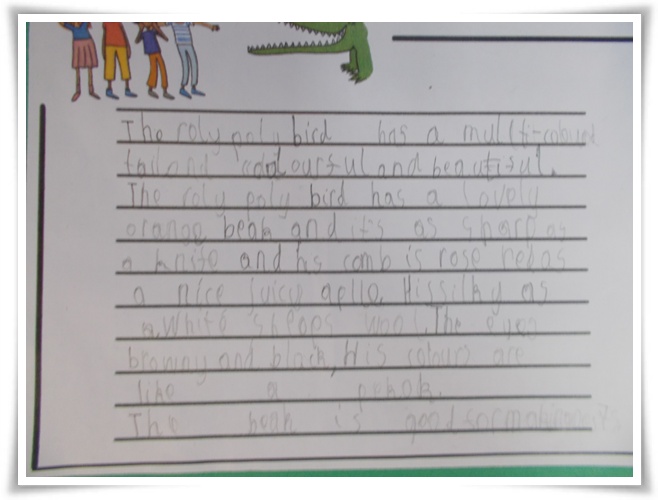 The roly poly bird has a multi-coloured
tail and colourful and beautiful.
The roly poly bird has a lovely
orange beak and it's as sharp as
a knife and his comb is rose red as
a nice juicy aplle. His silky as
a white sheeps wool. The eyes
browny and black, His colours are
like a pekok.
The beak is good for